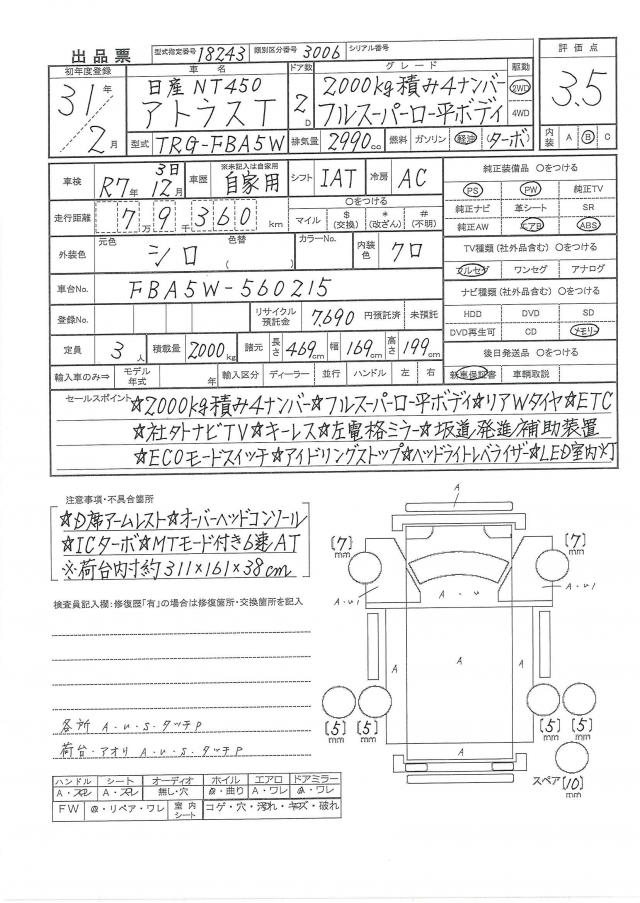 出品票 型式指定番号 18243 類別区分番号 3006 シリアル番号
初年度登録 車名 ドア数 グレード 駆動 評価点
31年 2月
日産 NT450
アトラスT
2D
2000kg積み4ナンバー
フルスーパーロー平ボディ
2WD
4WD
3.5
内装 A B C
型式 TRG-FBA5W 排気量 2990cc 燃料 ガソリン 軽油 (ターボ)
車検 R7年 12月 3日 車歴 ※未記入は自家用 自家用 シフト IAT 冷房 AC
走行距離 7万 9千 360 km 〇をつける マイル $(交換) *(改ざん) #(不明)
外装色 元色 シロ 色替 ( ) カラーNo. 内装色 クロ
車台No. FBA5W-560215
登録No. リサイクル預託金 7,690 円預託済 未預託
定員 3人 積載量 2000kg 諸元 長さ 469cm 幅 169cm 高さ 199cm
輸入車のみ⇒ モデル年式 年 輸入区分 ディーラー 並行 ハンドル 左 右
純正装備品 〇をつける
PS PW 純正TV
純正ナビ 革シート SR
純正AW エアB ABS
TV種類(社外品含む) 〇をつける
フルセグ ワンセグ アナログ
ナビ種類(社外品含む) 〇をつける
HDD DVD SD
DVD再生可 CD メモリー
後日発送品 〇をつける
新車保証書 車輌取説
セールスポイント ☆2000kg積み4ナンバー☆フルスーパーロー平ボディ☆リアWタイヤ☆ETC
☆社外ナビTV☆キーレス☆左電格ミラー☆坂道発進補助装置
☆ECOモードスイッチ☆アイドリングストップ☆ヘッドライトレベライザー☆LED室内灯
注意事項・不具合箇所
☆D席アームレスト☆オーバーヘッドコンソール
☆ICターボ☆MTモード付き6速AT
※荷台内寸約311×161×38cm
検査員記入欄:修復歴「有」の場合は修復箇所・交換箇所を記入
各所 A・U・S・タッチP
荷台・アオリ A・U・S・タッチP
ハンドル シート オーディオ ホイル エアロ ドアミラー
A・スレ A・スレ 無し・穴 @・曲り A・ワレ @・ワレ
FW @・リペア・ワレ 室内シート コゲ・穴・汚れ・キズ・破れ
A
[7]mm
[7]mm
A・U1
A・U
A・U1
A
A
A
[5]mm
[5]mm
[5]mm
[5]mm
A
スペア [10]mm